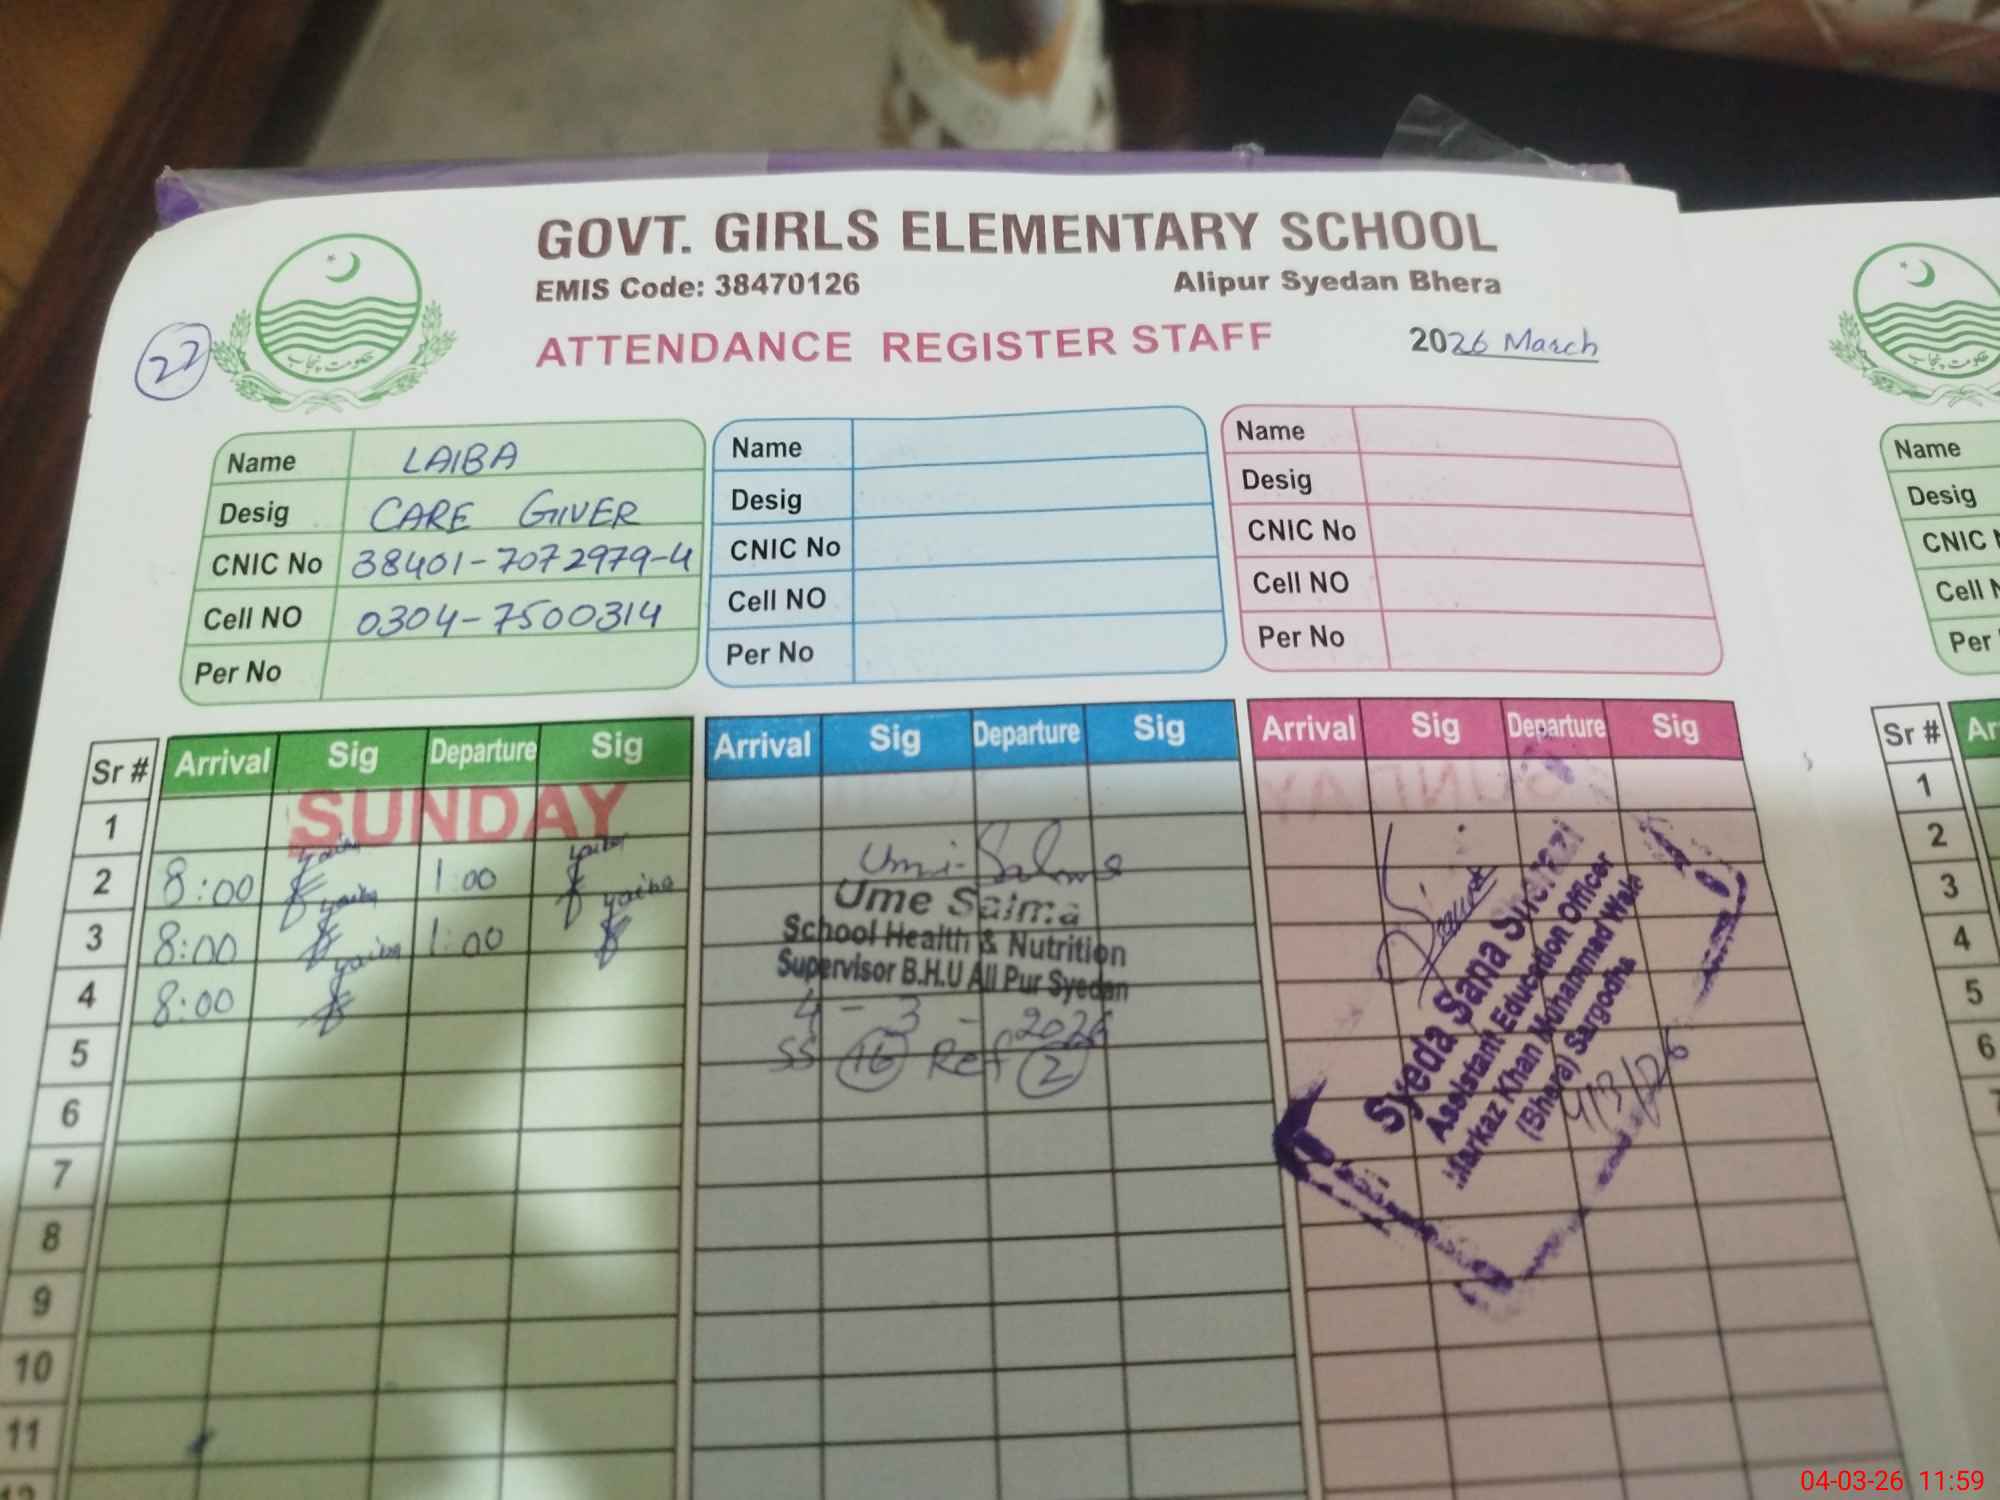 GOVT. GIRLS ELEMENTARY SCHOOL
EMIS Code: 38470126 Alipur Syedan Bhera
ATTENDANCE REGISTER STAFF 2026 March
22
حکومت پنجاب
Name LAIBA
Desig CARE GIVER
CNIC No 38401-7072979-4
Cell NO 0304-7500314
Per No
Name
Desig
CNIC No
Cell NO
Per No
Name
Desig
CNIC No
Cell NO
Per No
Sr # Arrival Sig Departure Sig Arrival Sig Departure Sig Arrival Sig Departure Sig
1 SUNDAY
2 8:00 1:00
3 8:00 1:00
4 8:00
5
6
7
8
9
10
11
12
Ume Salma
School Health & Nutrition
Supervisor B.H.U Ali Pur Syedan
4-3-2026
SS 16 Ref 2
Syeda Sana Sherazi
Assistant Education Officer
Markaz Khan Muhammad Wala
(Bhera) Sargodha
4/3/26
حکومت پنجاب
Name
Desig
CNIC N
Cell N
Per
Sr # Ar
1
2
3
4
5
6
7
04-03-26 11:59